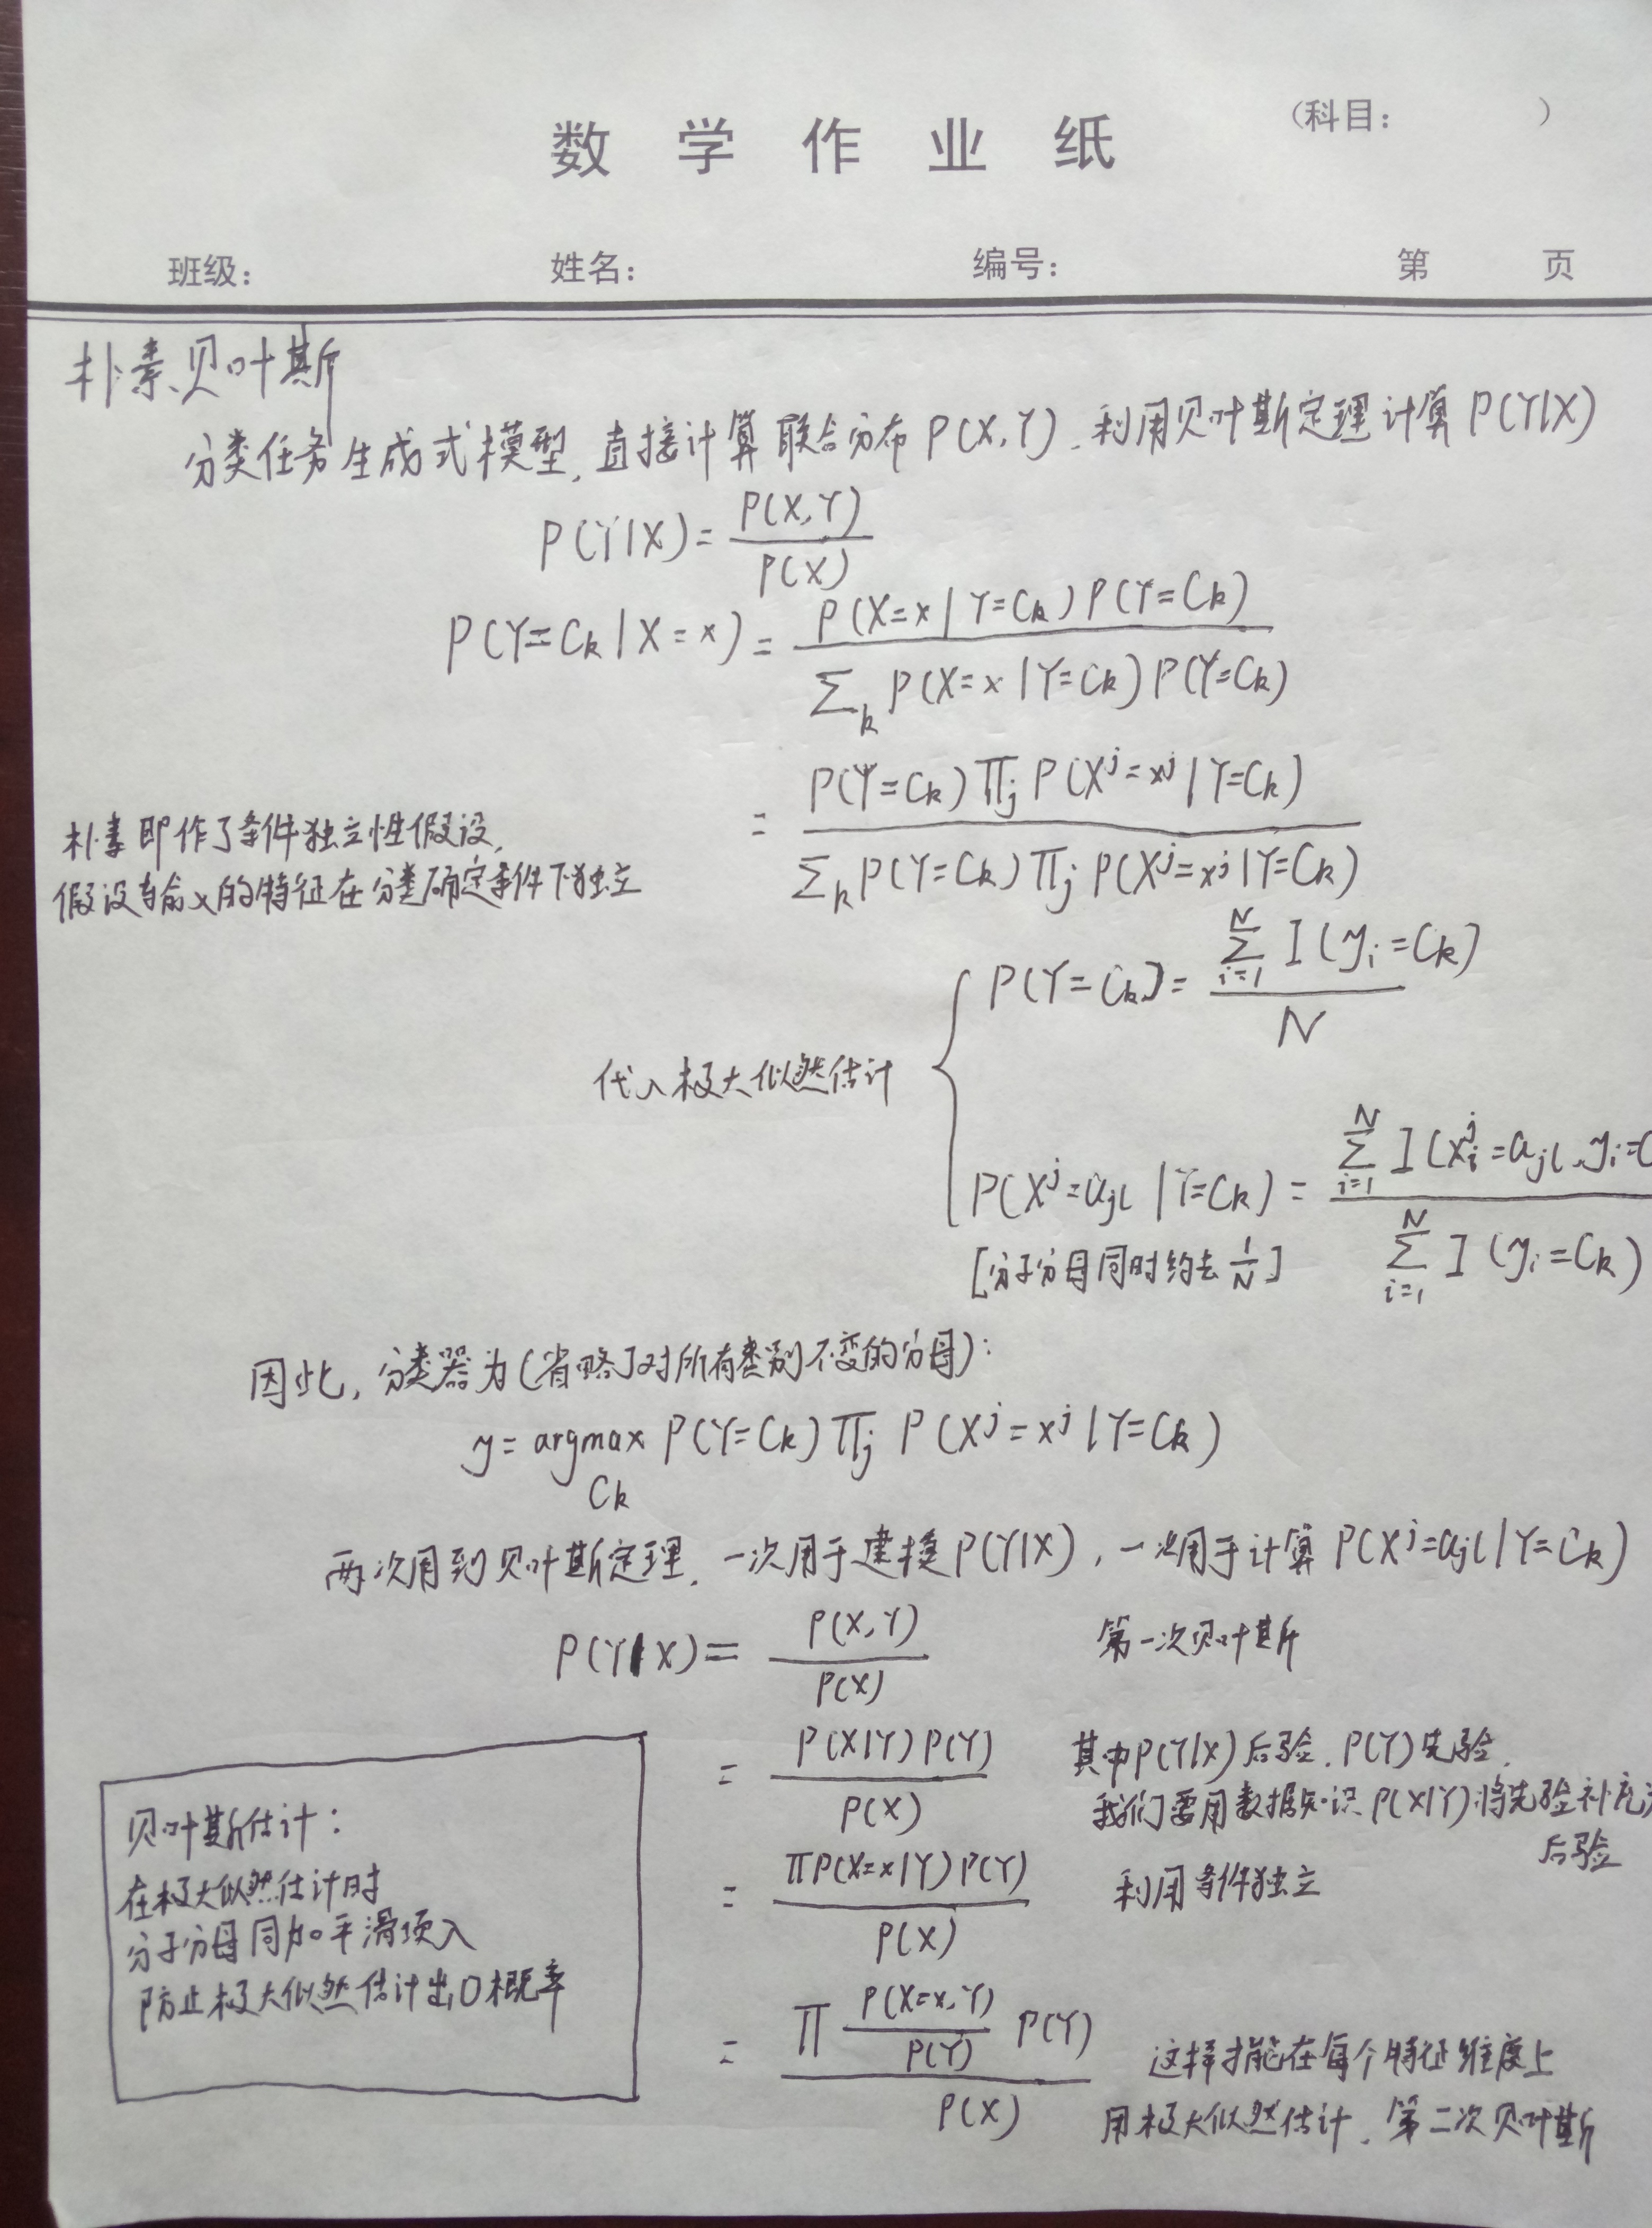 （科目： ）
数学作业纸
班级： 姓名： 编号： 第 页
朴素贝叶斯
分类任务生成式模型,直接计算联合分布P(X,Y).利用贝叶斯定理计算P(Y|X)
P(Y|X)=P(X,Y)/P(X)
P(Y=Ck|X=x)=P(X=x|Y=Ck)P(Y=Ck)/∑k P(X=x|Y=Ck)P(Y=Ck)
=P(Y=Ck)∏j P(X^j=x^j|Y=Ck)/∑k P(Y=Ck)∏j P(X^j=x^j|Y=Ck)
朴素即作了条件独立性假设,
假设输入的特征在分类确定条件下独立
代入极大似然估计
P(Y=Ck)=∑_{i=1}^N I(yi=Ck)/N
P(X^j=ajl|Y=Ck)=∑_{i=1}^N I(xi^j=ajl,yi=C/∑_{i=1}^N I(yi=Ck)
[分子分母同时约去1/N]
因此,分类器为(省略了对所有类别不变的分母):
y=argmax_{Ck} P(Y=Ck)∏j P(X^j=x^j|Y=Ck)
两次用到贝叶斯定理.一次用于建模P(Y|X),一次用于计算P(X^j=ajl|Y=Ck)
P(Y|X)=P(X,Y)/P(X) 第一次贝叶斯
=P(X|Y)P(Y)/P(X) 其中P(Y|X)后验.P(Y)先验.
我们要用数据知识P(X|Y)将先验补充
后验
=∏P(X=x|Y)P(Y)/P(X) 利用条件独立
=∏ P(X=x,Y)/P(Y) P(Y)/P(X) 这样才能在每个特征维度上
用极大似然估计.第二次贝叶斯
贝叶斯估计:
在极大似然估计时
分子分母同加平滑项λ
防止极大似然估计出0概率